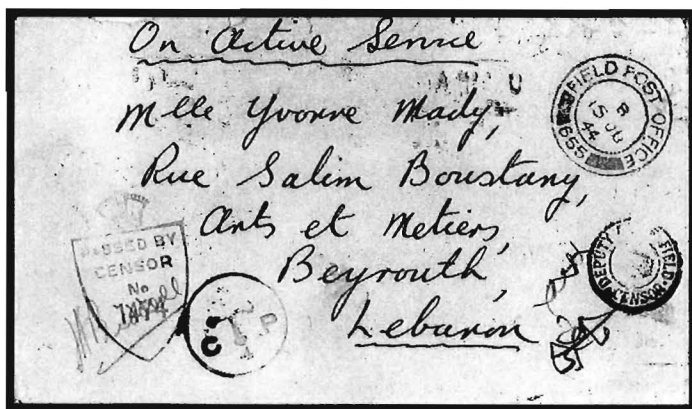 On Active Service
Mlle Yvonne Mady,
Rue Salim Boustany,
Arts et Metiers,
Beyrouth,
Lebanon
FIELD POST OFFICE
655
44
PASSED BY
CENSOR
No
DEPUTY FIELD CENSOR